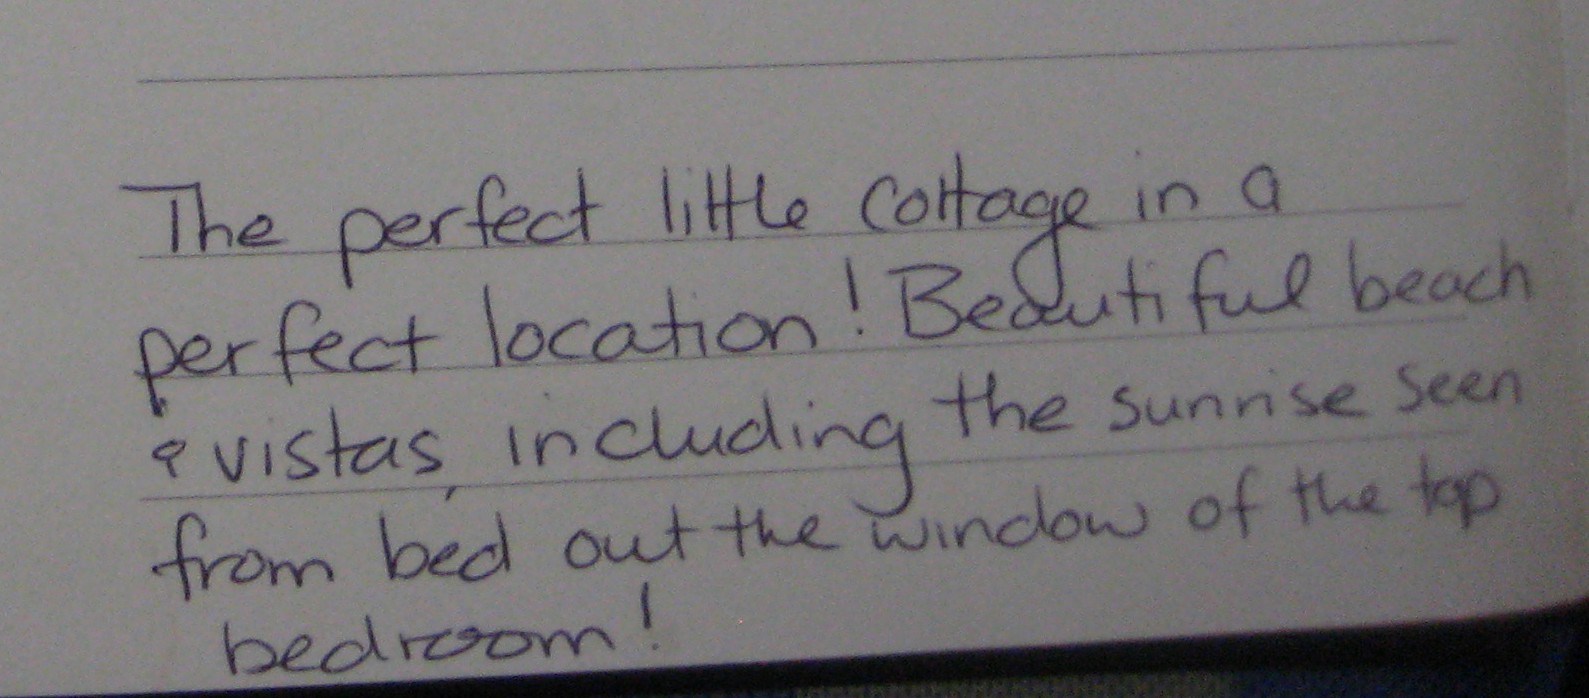 The perfect little cottage in a
perfect location! Beautiful beach
& vistas, including the sunrise seen
from bed out the window of the top
bedroom!